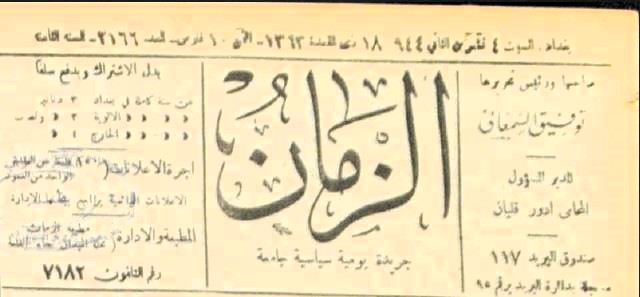 بغداد. السبت ٤ تشرين الثاني ٩٤٤ ١٨ ذي القعدة ١٣٦٣- الثمن ١٠ فلوس- العدد ٢١٦٦- السنة الثامنة
صاحبها ورئيس تحريرها
توفيق السمعاني
المدير المسؤول
المحامي ادور قليان
صندوق البريد ١١٧
بدائرة البريد برقم ٩٥
الزمان
جريدة يومية سياسية جامعة
بدل الاشتراك ويدفع سلفا
عن سنة كاملة في بغداد ٣ دنانير
» » » » الالوية ٣ » ونصف
» » » » الخارج ٤ »
اجرة الاعلانات
الاعلانات يراجع بشأنها الادارة
المطبعة والادارة
مطبعة الزمان
رقم التلفون ٧١٨٢